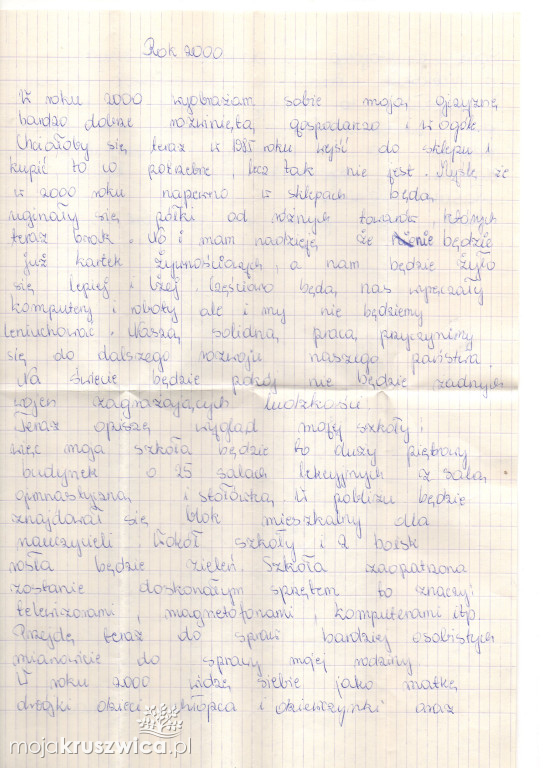 Rok 2000
W roku 2000 wyobrażam sobie moją ojczyznę
bardzo dobrze rozwiniętą gospodarczo i w ogóle.
Chciałoby się teraz w 1985 roku wejść do sklepu i
kupić to co potrzebne, lecz tak nie jest. Myślę że
w 2000 roku napewno w sklepach będą
uginały się półki od różnych towarów, których
teraz brak. No i mam nadzieję, że nie będzie
już kartek żywnościowych, a nam będzie żyło
się lepiej i lżej. Częściowo będą nas wyręczały
komputery i roboty ale i my nie będziemy
leniuchować. Naszą solidną pracą przyczynimy
się do dalszego rozwoju naszego państwa.
Na świecie będzie pokój nie będzie żadnych
wojen zagrażających ludzkości.
Teraz opiszę wygląd mojej szkoły i
więc moja szkoła będzie to duży piętrowy
budynek o 25 salach lekcyjnych z salą
gimnastyczną i stołówką. W pobliżu będzie
znajdował się blok mieszkalny dla
nauczycieli. Wokół szkoły i 2 boisk
rosła będzie zieleń. Szkoła zaopatrzona
zostanie doskonałym sprzętem to znaczy:
telewizorami, magnetofonami, komputerami itp.
Przejdę teraz do spraw bardziej osobistych
mianowicie do sprawy mojej rodziny.
W roku 2000 widzę siebie jako matkę
dwójki dzieci chłopca i dziewczynki oraz
mojakruszwica.pl